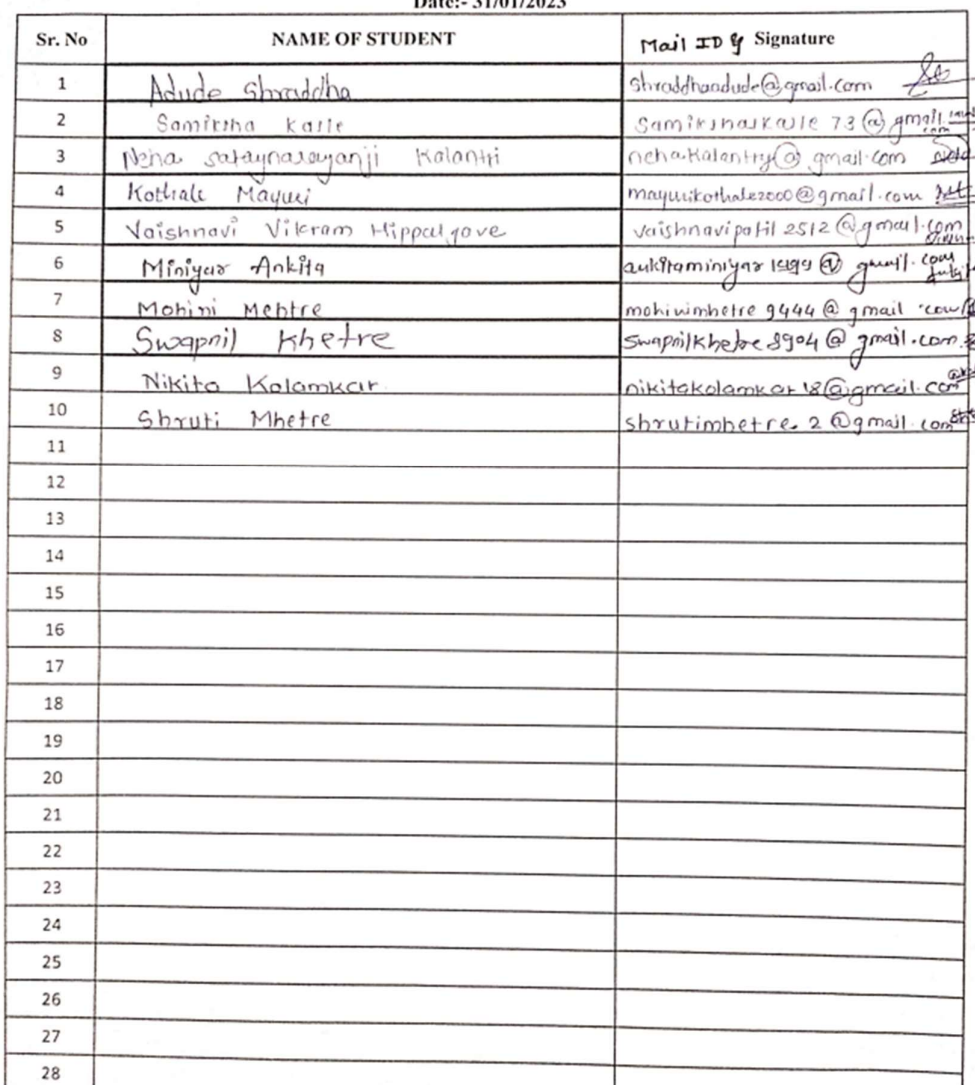 Date:- 31/01/2023
Sr. No NAME OF STUDENT Mail ID & Signature
1 Adude Shraddha shraddhaadude@gmail.com
2 Samiksha Kalle 73@gmail.com
3 Neha sataynarayanji Kalantri nehakalantry@gmail.com Neha
4 Kothale Mayuri mayurikothale2000@gmail.com
5 Vaishnavi Vikram Hippalgave vaishnavipatil2512@gmail.com
6 Miniyar Ankita ankitaminiyar1999@gmail.com
7 Mohini Mehtre mohinimhetre9444@gmail.com
8 Swapnil Khetre swapnilkhetre8904@gmail.com
9 Nikita Kolamkar nikitakolamkar18@gmail.com
10 Shruti Mhetre shrutimhetre.2@gmail.com
11
12
13
14
15
16
17
18
19
20
21
22
23
24
25
26
27
28